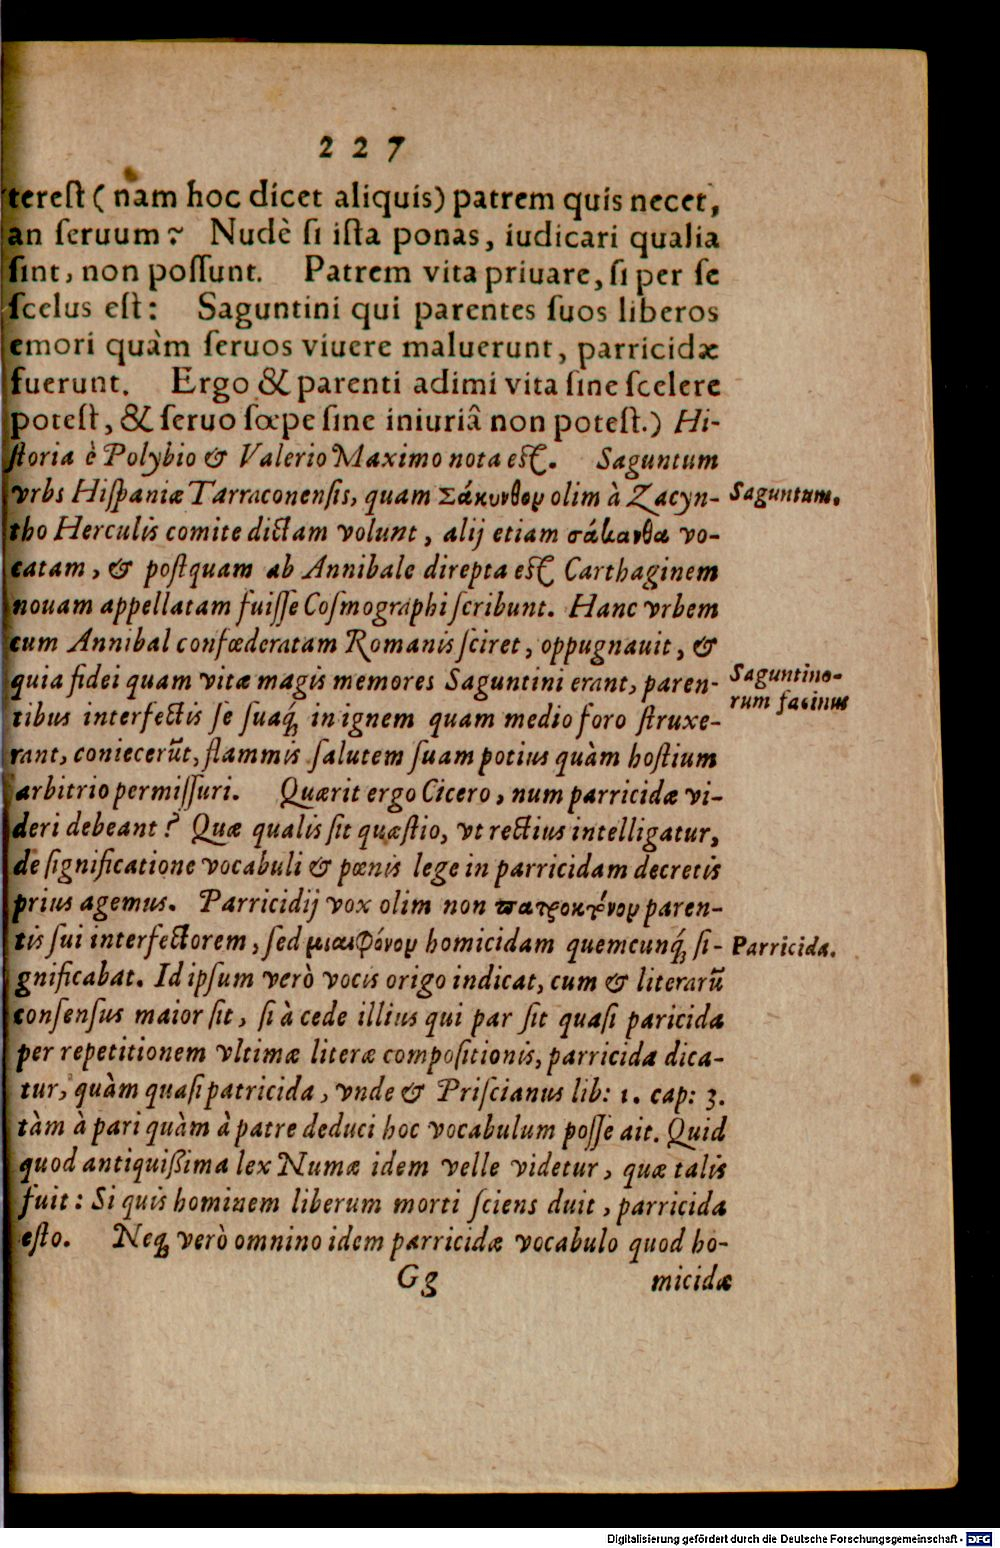 2 2 7
terest ( nam hoc dicet aliquis) patrem quis necet,
an seruum? Nudè si ista ponas, iudicari qualia
sint, non possunt. Patrem vita priuare, si per se
scelus est: Saguntini qui parentes suos liberos
emori quàm seruos viuere maluerunt, parricidæ
fuerunt. Ergo & parenti adimi vita sine scelere
potest, & seruo sœpe sine iniuriâ non potest.) Hi-
storia è Polybio & Valerio Maximo nota est. Saguntum
vrbs Hispaniæ Tarraconensis, quam Σάκυνθον olim à Zacyn-
Saguntum.
tho Herculis comite dictam volunt, alij etiam σάκανθα vo-
catam, & postquam ab Annibale direpta est Carthaginem
nouam appellatam fuisse Cosmographi scribunt. Hanc vrbem
cum Annibal confœderatam Romanis sciret, oppugnauit, &
quia fidei quam vitæ magis memores Saguntini erant, paren-
Saguntino-
rum facinus
tibus interfectis se suaq́ in ignem quam medio foro struxe-
rant, coniecerũt, flammis salutem suam potius quàm hostium
arbitrio permissuri. Quærit ergo Cicero, num parricidæ vi-
deri debeant? Quæ qualis sit quæstio, vt rectius intelligatur,
de significatione vocabuli & pœnis lege in parricidam decretis
prius agemus. Parricidij vox olim non πατροκτόνον paren-
tis sui interfectorem, sed μιαιφόνον homicidam quemcunq́ si-
Parricida.
gnificabat. Id ipsum verò vocis origo indicat, cum & literarũ
consensus maior sit, si à cede illius qui par sit quasi paricida
per repetitionem vltimæ literæ compositionis, parricida dica-
tur, quàm quasi patricida, vnde & Priscianus lib: 1. cap: 3.
tàm à pari quàm à patre deduci hoc vocabulum posse ait. Quid
quod antiquißima lex Numæ idem velle videtur, quæ talis
fuit: Si quis hominem liberum morti sciens duit, parricida
esto. Neq́ verò omnino idem parricidæ vocabulo quod ho-
Gg
micidæ
Digitalisierung gefördert durch die Deutsche Forschungsgemeinschaft - DFG